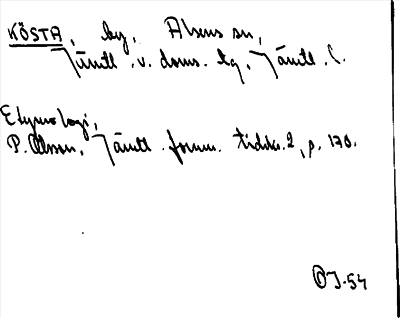 KÖSTA, by, Alsens sn,
Jämtl. v. doms. tg, Jämtl. l.
Etymologi,
P. Olsson, Jämtl. fornm. tidskr. 2, p. 170.
OJ-54